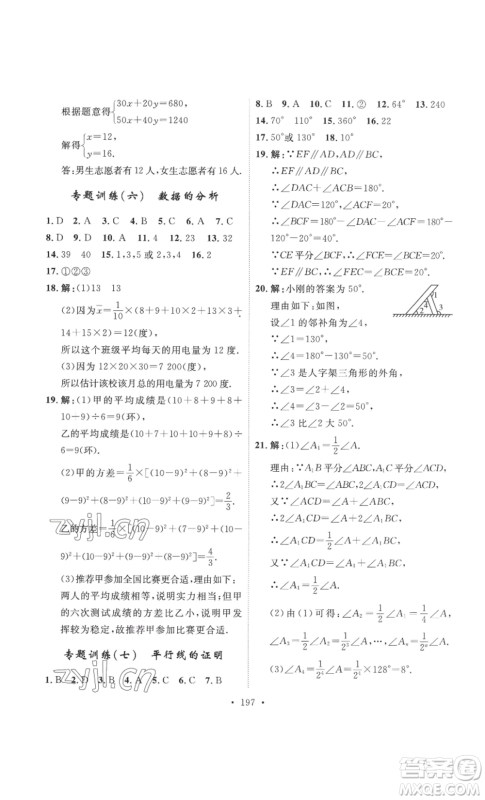 根据题意得{30x+20y=680,
50x+20y=1240
解得{x=12,
y=16.
答:男生志愿者有 12 人,女生志愿者有 16 人.
专题训练(六) 数据的分析
1. D 2. A 3. C 4. B 5. A 6. C 7. B
8. D 9. B 10. D 11. 4 12. 9 13. 32
14. 39 40 15. >、< 16. 2
17. ①②③
18. 解:(1)13 13
(2)因为x̄=1/10×(8+9+10×2+13×3
+14×2+15)=12(度),
所以这个班级平均每天的用电量为 12 度.
(3)12×20×30=7 200(度),
所以估计该校该月总的用电量为 7 200 度.
19. 解:(1)甲的平均成绩是(10+8+9+8+
10+9)÷6=9(环),
乙的平均成绩是(10+7+10+10+9+
8)÷6=9(环).
(2)甲的方差=1/6×[(10-9)²+(8-9)²+
(9-9)²+(8-9)²+(10-9)²+(9-9)²]=2/3.
乙的方差=1/6×[(10-9)²+(7-9)²+
(10-9)²+(10-9)²+(9-9)²+(8-9)²]=4/3.
(3)推荐甲参加全国比赛更合适,理由如下:
两人的平均成绩相等,说明实力相当;但甲
的六次测试成绩的方差比乙小,说明甲发
挥较为稳定,故推荐甲参加比赛更合适.
专题训练(七) 平行线的证明
1. B 2. D 3. B 4. D 5. A 6. C 7. C
8. B 9. A 10. C 11. ② 12. 64° 13. 240
14. 70° 110° 15. 360° 16. 22
17. 50°或 130° 18. 10°
19. 解:∵EF∥AD,AD∥BC,
∴EF∥AD∥BC,
∴∠DAC+∠ACB=180°.
∵∠DAC=120°,
∴∠ACB=60°.
∵∠ACF=20°,
∴∠BCF=∠ACB-∠ACF=40°.
∵CE平分∠BCF,∴∠FCE=∠BCE=20°.
∵EF∥BC,∴∠FEC=∠BCE=20°.
20. 解:小刚的答案为 50°.
理由如下:如图,
设∠1 的邻补角为∠2,
∵∠1=130°,
∴∠2=50°,
∵∠3 是人字架三角形的外角,
∴∠3=∠4+∠2,
∴∠3-∠4=∠2=50°,
∴∠3 比∠2 大 50°.
21. 解:(1)∠A₁=1/2∠A.
理由:∵A₁B平分∠ABC,A₁C平分∠ACD,
∴∠A₁BC=1/2∠ABC,∠A₁CD=1/2∠ACD.
又∵∠ACD=∠A+∠ABC,
∴∠A₁CD=1/2∠A+∠A₁BC.
∵∠A₁CD=∠A₁+∠A₁BC,
∴∠A₁=1/2∠A.
(2)由(1)可得∠A₂=1/2∠A₁=1/4∠A,
∠A₃=1/2∠A₂=1/8∠A.
(3)∠A₄=1/2⁴∠A=1/2⁴×128°=8°.
• 197 •
zyjl.cn
zyjl.cn
答案圈
MXQE.COM